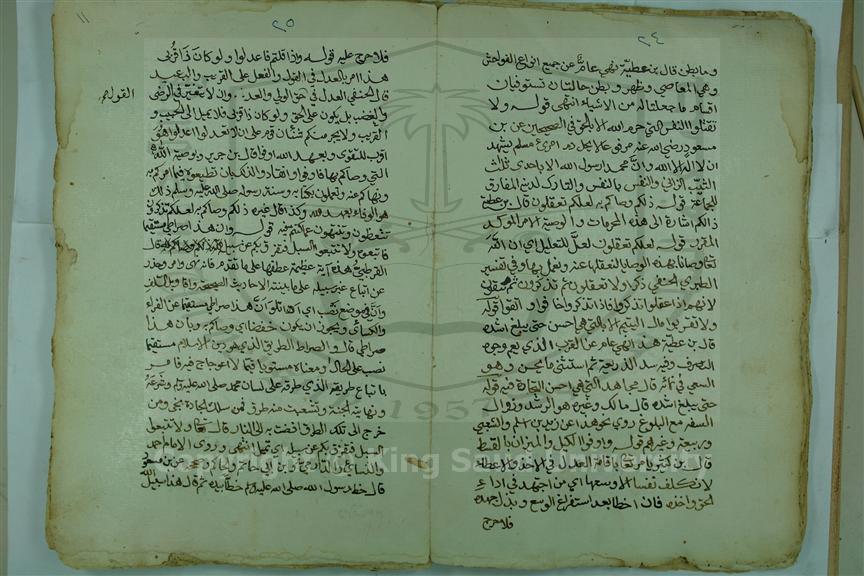 ٢٤
وما بطن قال بن عطية نهي عام عن جميع انواع الفواحش
وهي المعاصي وظهر وبطن حالتان تستوفيان
اقسام ما جعلتا له من الاشياء انتهى قوله ولا
تقتلوا النفس التي حرم الله الا بالحق في الصحيحين عن بن
مسعود رضي الله عنه مرفوعا لا يحل دم امرئ مسلم يشهد
ان لا اله الا الله وان محمد ارسول الله الا باحدى ثلث
الثيب الزاني والنفس بالنفس والتارك لدينه المفارق
للجماعة قوله ذلكم وصاكم به لعلكم تعقلون قال بن عطية
ذالكم اشارة الى هذه المحرمات والوصية الامر الموكد
المقرر قوله لعلكم تعقلون لعل للتعليل اي ان الله
تعالى وصانا بهذه الوصايا لنعقلها عنه ونعمل بها وفي تفسير
الطبري الحنفي ذكر اولا تعقلون ثم تذكرون ثم تتقون
لانهم اذا عقلوا تذكروا فاذا تذكروا خافوا واتقوا قوله
ولا تقربوا مال اليتيم الا بالتي هي احسن حتى يبلغ اشده
قال بن عطية هذا انهي عام عن القرب الذي يعم وجوه
التصرف وفيه سد الذريعة ثم استثنى ما يحسن وهو
السعي في نمائه قال مجاهد التي هي احسن التجارة فيه قوله
حتى يبلغ اشده قال مالك وغيره هو الرشد وزوال
السفه مع البلوغ روي نحو هذا عن زيد بن اسلم والشعبي
وربيعة وغيرهم قوله واوفوا الكيل والميزان بالقسط
قال بن كثير يامر تعالى باقامة العدل في الاخذ والاعطاء
لا نكلف نفسا الا وسعها اي من اجتهد في اداء
الحق واخذه فان اخطا بعد استفراغ الوسع وبذل جهده
فلا حرج
٢٥
١١
فلا حرج عليه قوله واذا قلتم فاعدلوا ولو كان ذا قربى
هذا امر بالعدل في القول والفعل على القريب والبعيد
قال الحنفي العدل في القول في حق الولي والعدو وان لا يتغير في الرضى
والغضب بل يكون على الحق ولو كان ذا قربى فلا يميل الى الحبيب و
القريب ولا يجرمنكم شنئان قوم على ان لا تعدلوا اعدلوا هو
اقرب للتقوى وبعهد الله اوفوا قال بن جرير وبوصية الله
التي وصاكم بها فاوفوا وانقادوا لذلك بان تطيعوه فيما امركم به
ونهاكم عنه وتعملوا بكتابه وسنة رسوله صلى الله عليه وسلم وذلك
هو الوفاء بعهد الله وكذا قال غيره ذلكم وصاكم به لعلكم تذكرون
تتعظون وتنتهون عما كنتم فيه قوله وان هذا صراطي مستقيما
فاتبعوه ولا تتبعوا السبل فتفرق بكم عن سبيله
القرطبي هذه آية عظيمة عطفها على ما تقدم فانه نهى وامر وحذر
عن اتباع غير سبيله على ما بينته الاحاديث الصحيحة واقاويل السلف
وان في موضع نصب اي اتلوا ان هذا صراطي مستقيما عن الفراء
والكسائي ويجوز ان يكون خفضا اي وصاكم به وبان هذا
صراطي قال والصراط الطريق الذي هو دين الاسلام مستقيما
نصب على الحال ومعناه مستويا قيما لا اعوجاج فيه فامر
باتباع طريقه الذي طرقه على لسان محمد صلى الله عليه وسلم وشرعه
ونهايته الجنة وتشعبت منه طرق فمن سلك الجادة نجى ومن
خرج الى تلك الطرق افضت به الى النار قال تعالى ولا تتبعوا
السبل فتفرق بكم عن سبيله اي تميل انتهى وروى الامام احمد
والنسائي والدارمي وبن ابي حاتم والحاكم وصححه عن بن مسعود
قال خط رسول الله صلى الله عليه وسلم خطا بيده ثم قال هذا سبيل الله
Copyright © King Saud University
1957